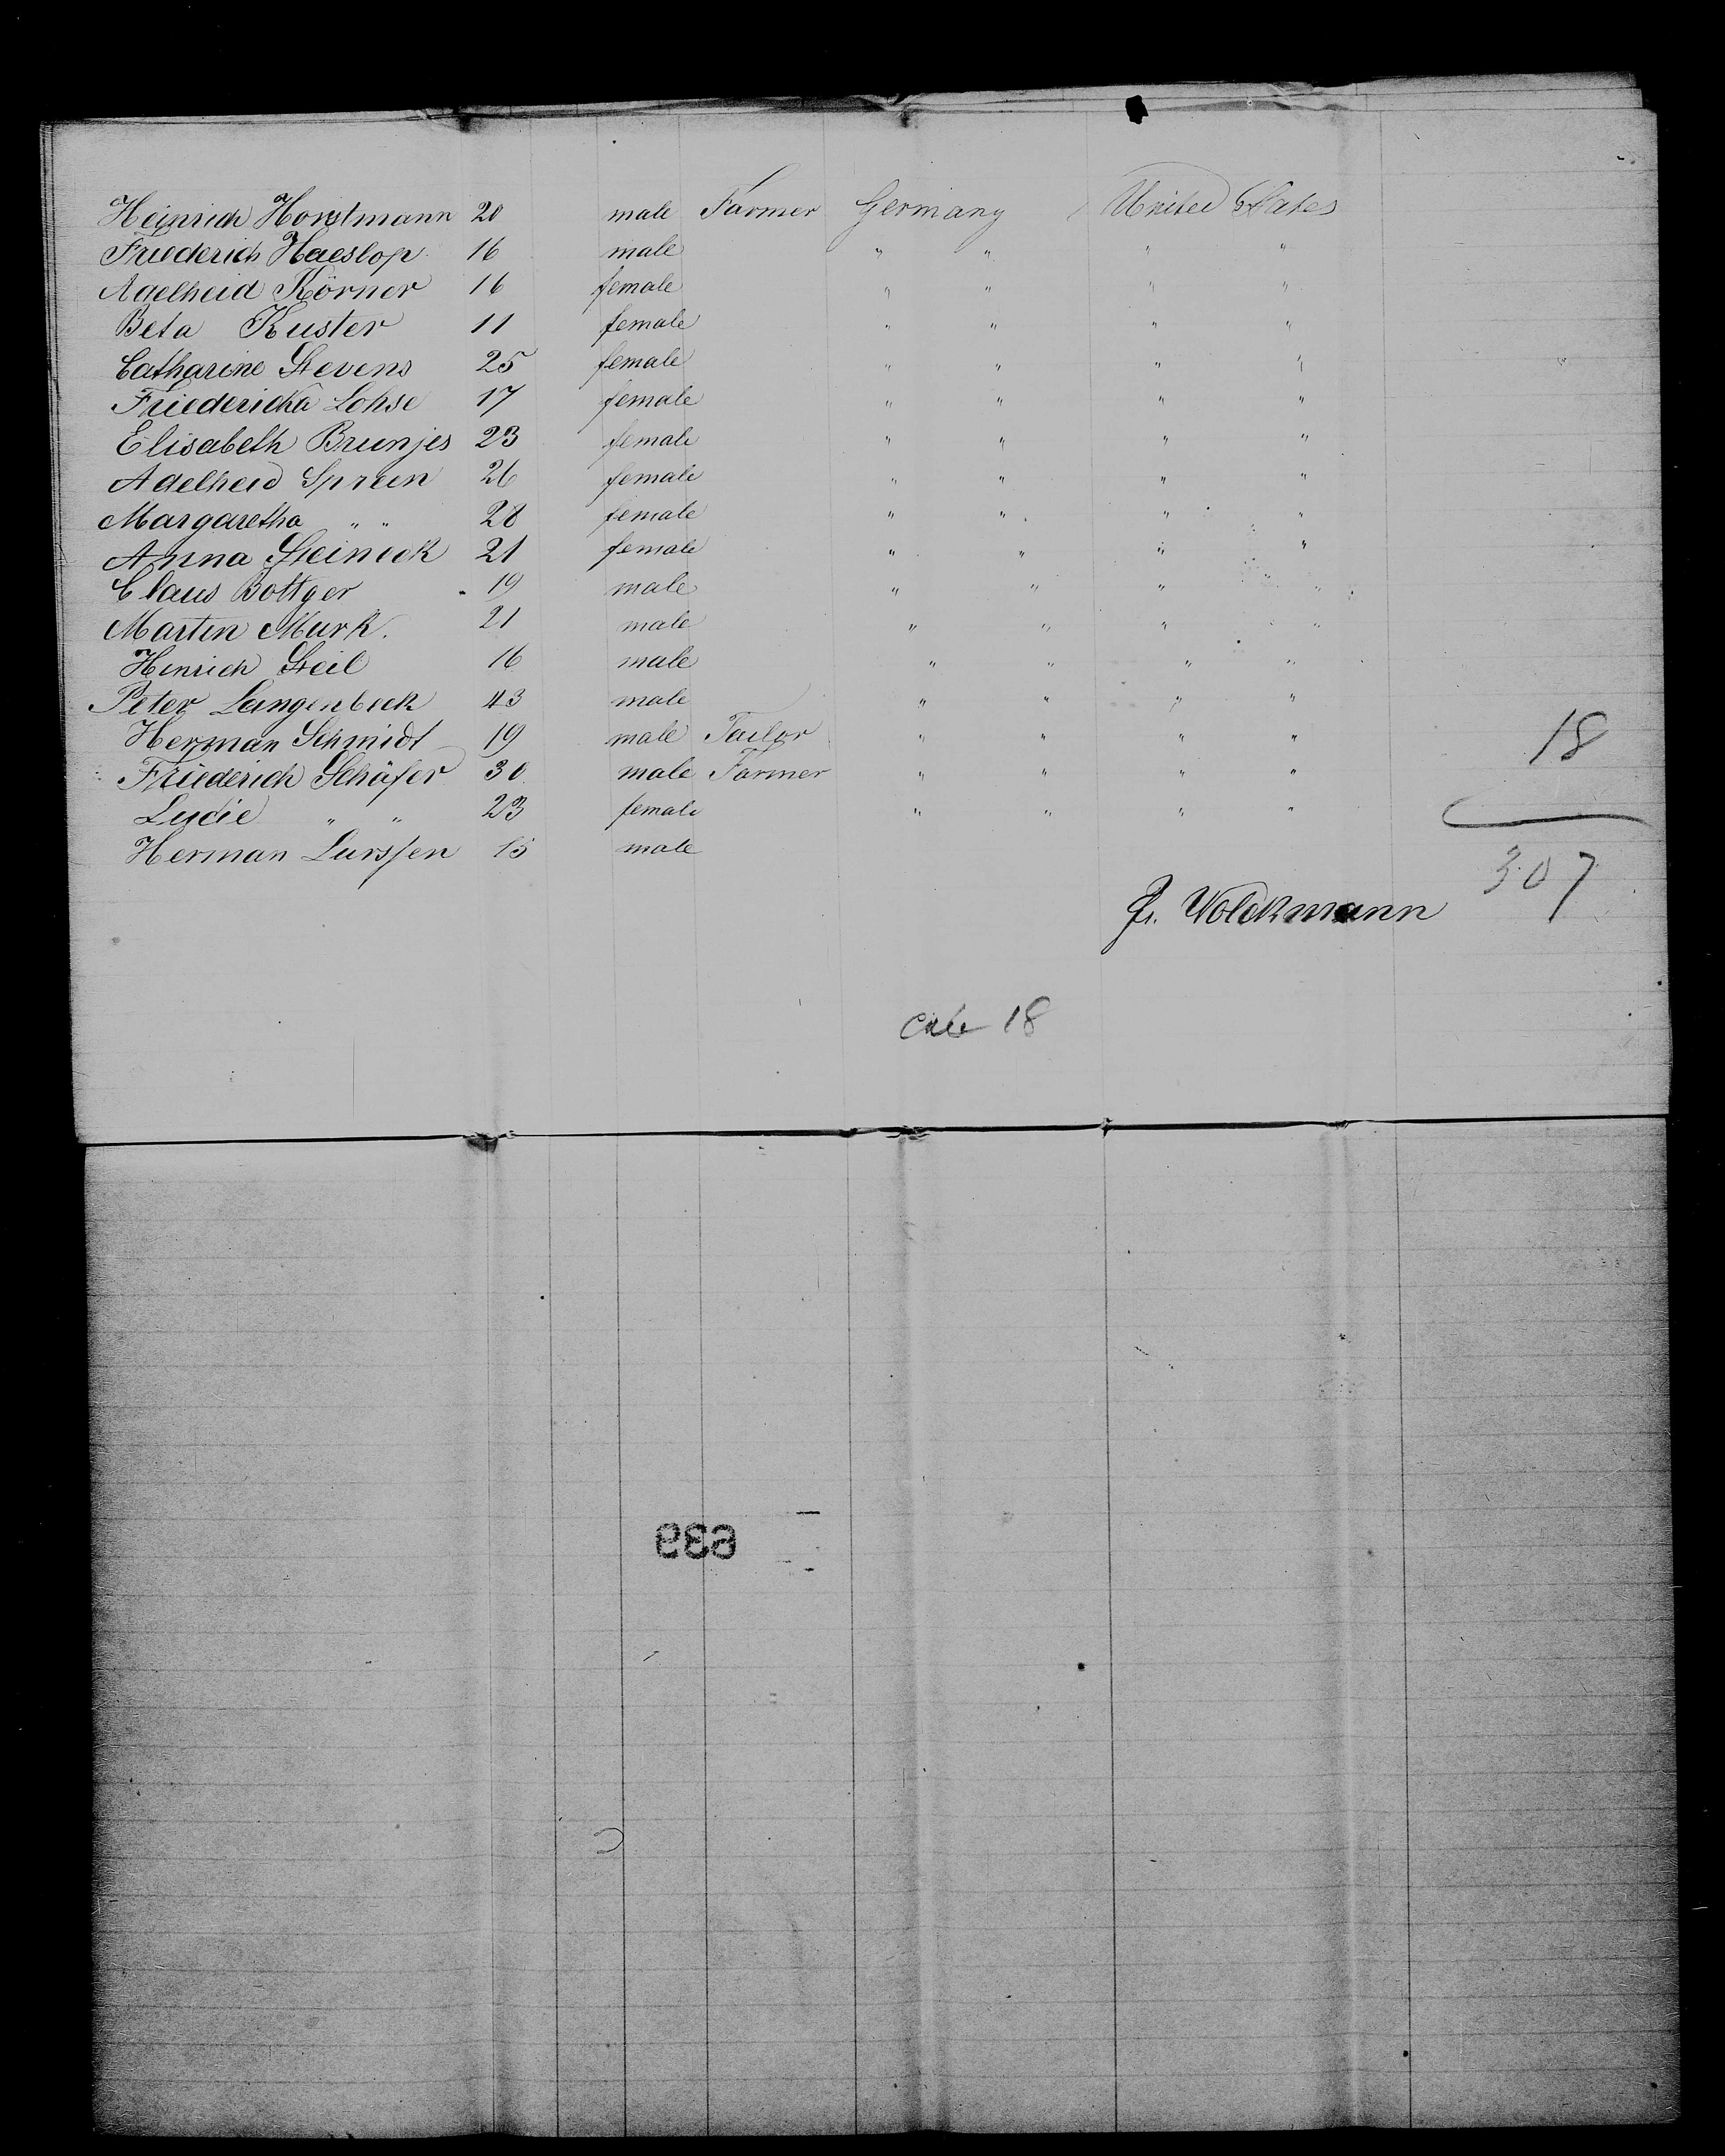 Heinrich Horstmann 20 male Farmer Germany United States
Friederich Haeslop 16 male " " " "
Adelheid Körner 16 female " " " "
Beta Kuster 11 female " " " "
Catharine Stevens 25 female " " " "
Friedericka Lohse 17 female " " " "
Elisabeth Brunjes 23 female " " " "
Adelheid Spreen 26 female " " " "
Margaretha " " 28 female " " " "
Anna Steineck 21 female " " " "
Claus Bottger 19 male " " " "
Martin Murk. 21 male " " " "
Hinrich Steil 16 male " " " "
Peter Langenbeck 43 male " " " "
Herman Schmidt 19 male Tailor " " " "
Friederich Schäfer 30 male Farmer " " " "
Lucie " " 23 female " " " "
Herman Lurssen 15 male
18
307
Wolckmann
18